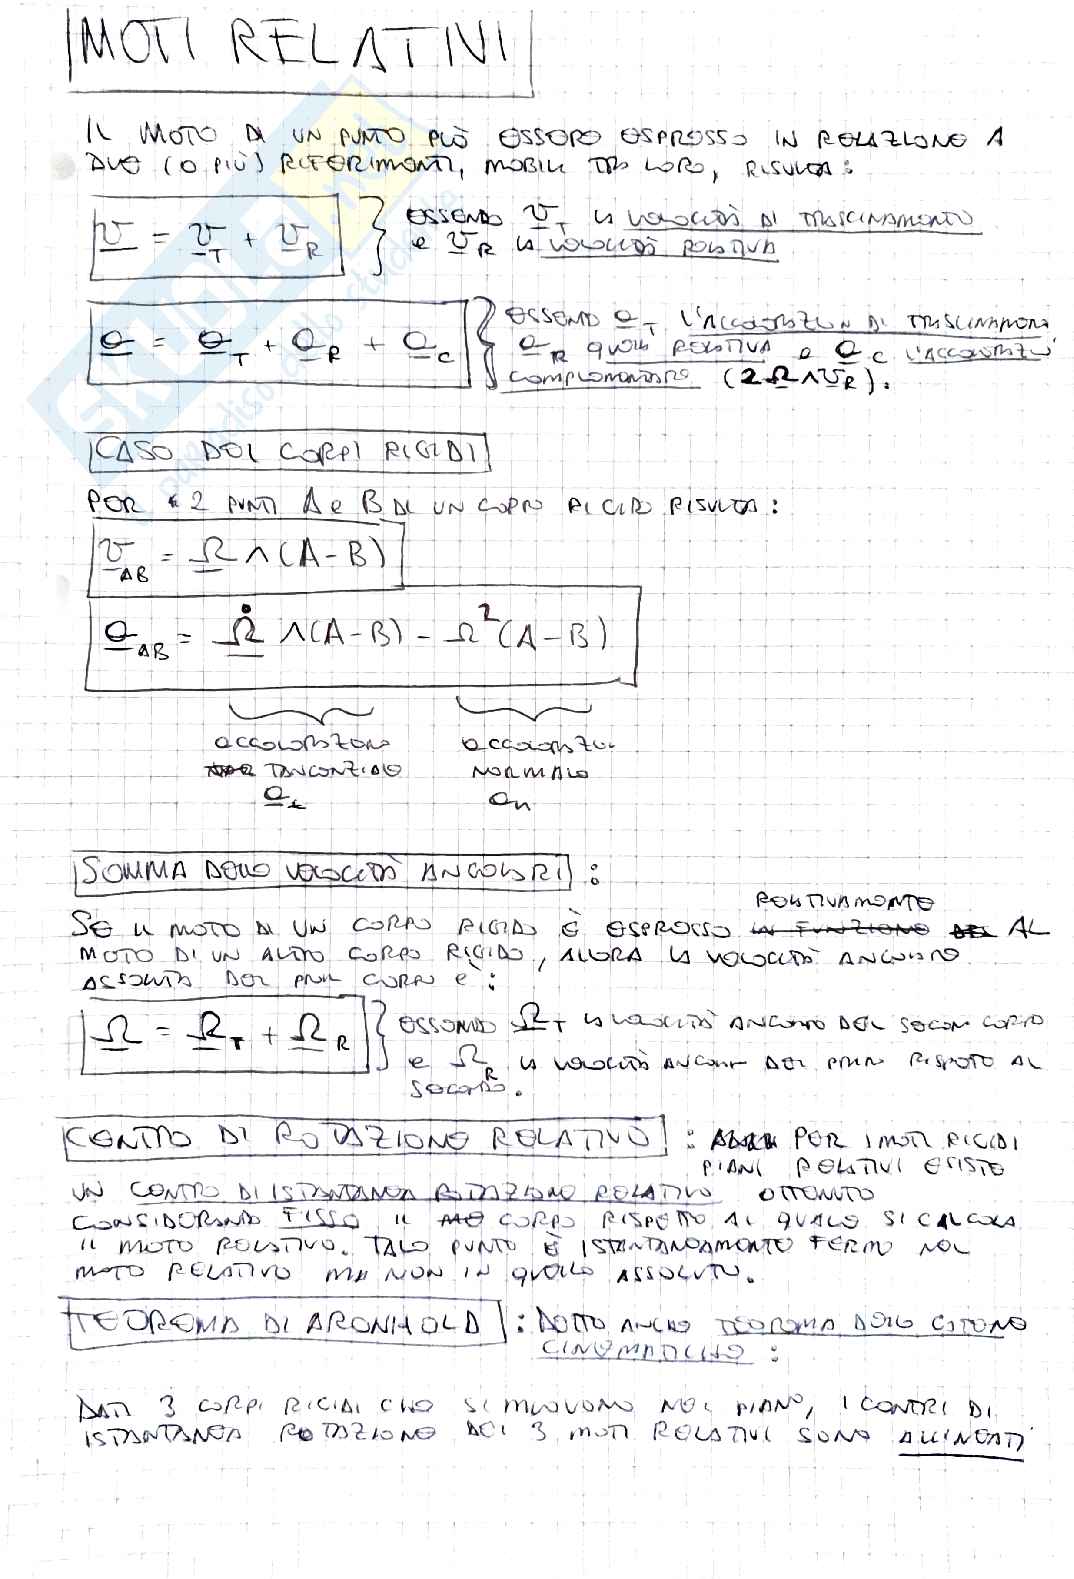 MOTI RELATIVI
IL MOTO DI UN PUNTO PUÒ ESSERE ESPRESSO IN RELAZIONE A
DUE (O PIÙ) RIFERIMENTI, MOBILI TRA LORO, RISULTA:
v = v_T + v_R } ESSENDO v_T LA VELOCITÀ DI TRASCINAMENTO
e v_R LA VELOCITÀ RELATIVA
a = a_T + a_R + a_C { ESSENDO a_T L'ACCELERAZION DI TRASCINAMEN
a_R QUELLA RELATIVA e a_C L'ACCELERAZI
COMPLEMENTARE (2Ω∧v_R).
CASO DEI CORPI RIGIDI
PER 2 PUNTI A e B DI UN CORPO RIGIDO RISULTA:
v_AB = Ω∧(A-B)
a_AB = Ω̇∧(A-B) - Ω²(A-B)
ACCELERAZIONE ACCELERAZION
TANGENZIALE NORMALE
a_t a_n
SOMMA DELLE VELOCITÀ ANGOLARI:
RELATIVAMENTE
SE IL MOTO DI UN CORPO RIGIDO È ESPRESSO IN FUNZIONE DEL AL
MOTO DI UN ALTRO CORPO RIGIDO, ALLORA LA VELOCITÀ ANGOLARE
ASSOLUTA DEL PRIM CORPO È:
Ω = Ω_T + Ω_R } ESSENDO Ω_T LA VELOCITÀ ANGOLARE DEL SECON CORPO
e Ω_R LA VELOCITÀ ANGOLAR DEL PRIMO RISPETTO AL
SECONDO.
CENTRO DI ROTAZIONE RELATIVO: PER I MOTI RIGIDI
PIANI RELATIVI ESISTE
UN CENTRO DI ISTANTANEA ROTAZIONE RELATIVO OTTENUTO
CONSIDERANDO FISSO IL CORPO RISPETTO AL QUALE SI CALCOLA
IL MOTO RELATIVO. TALE PUNTO È ISTANTANEAMENTE FERMO NEL
MOTO RELATIVO MA NON IN QUELLO ASSOLUTO.
TEOREMA DI ARONHOLD: DETTO ANCHE TEOREMA DELLE CATENE
CINEMATICHE:
DATI 3 CORPI RIGIDI CHE SI MUOVONO NEL PIANO, I CENTRI DI
ISTANTANEA ROTAZIONE DEI 3 MOTI RELATIVI SONO ALLINEATI